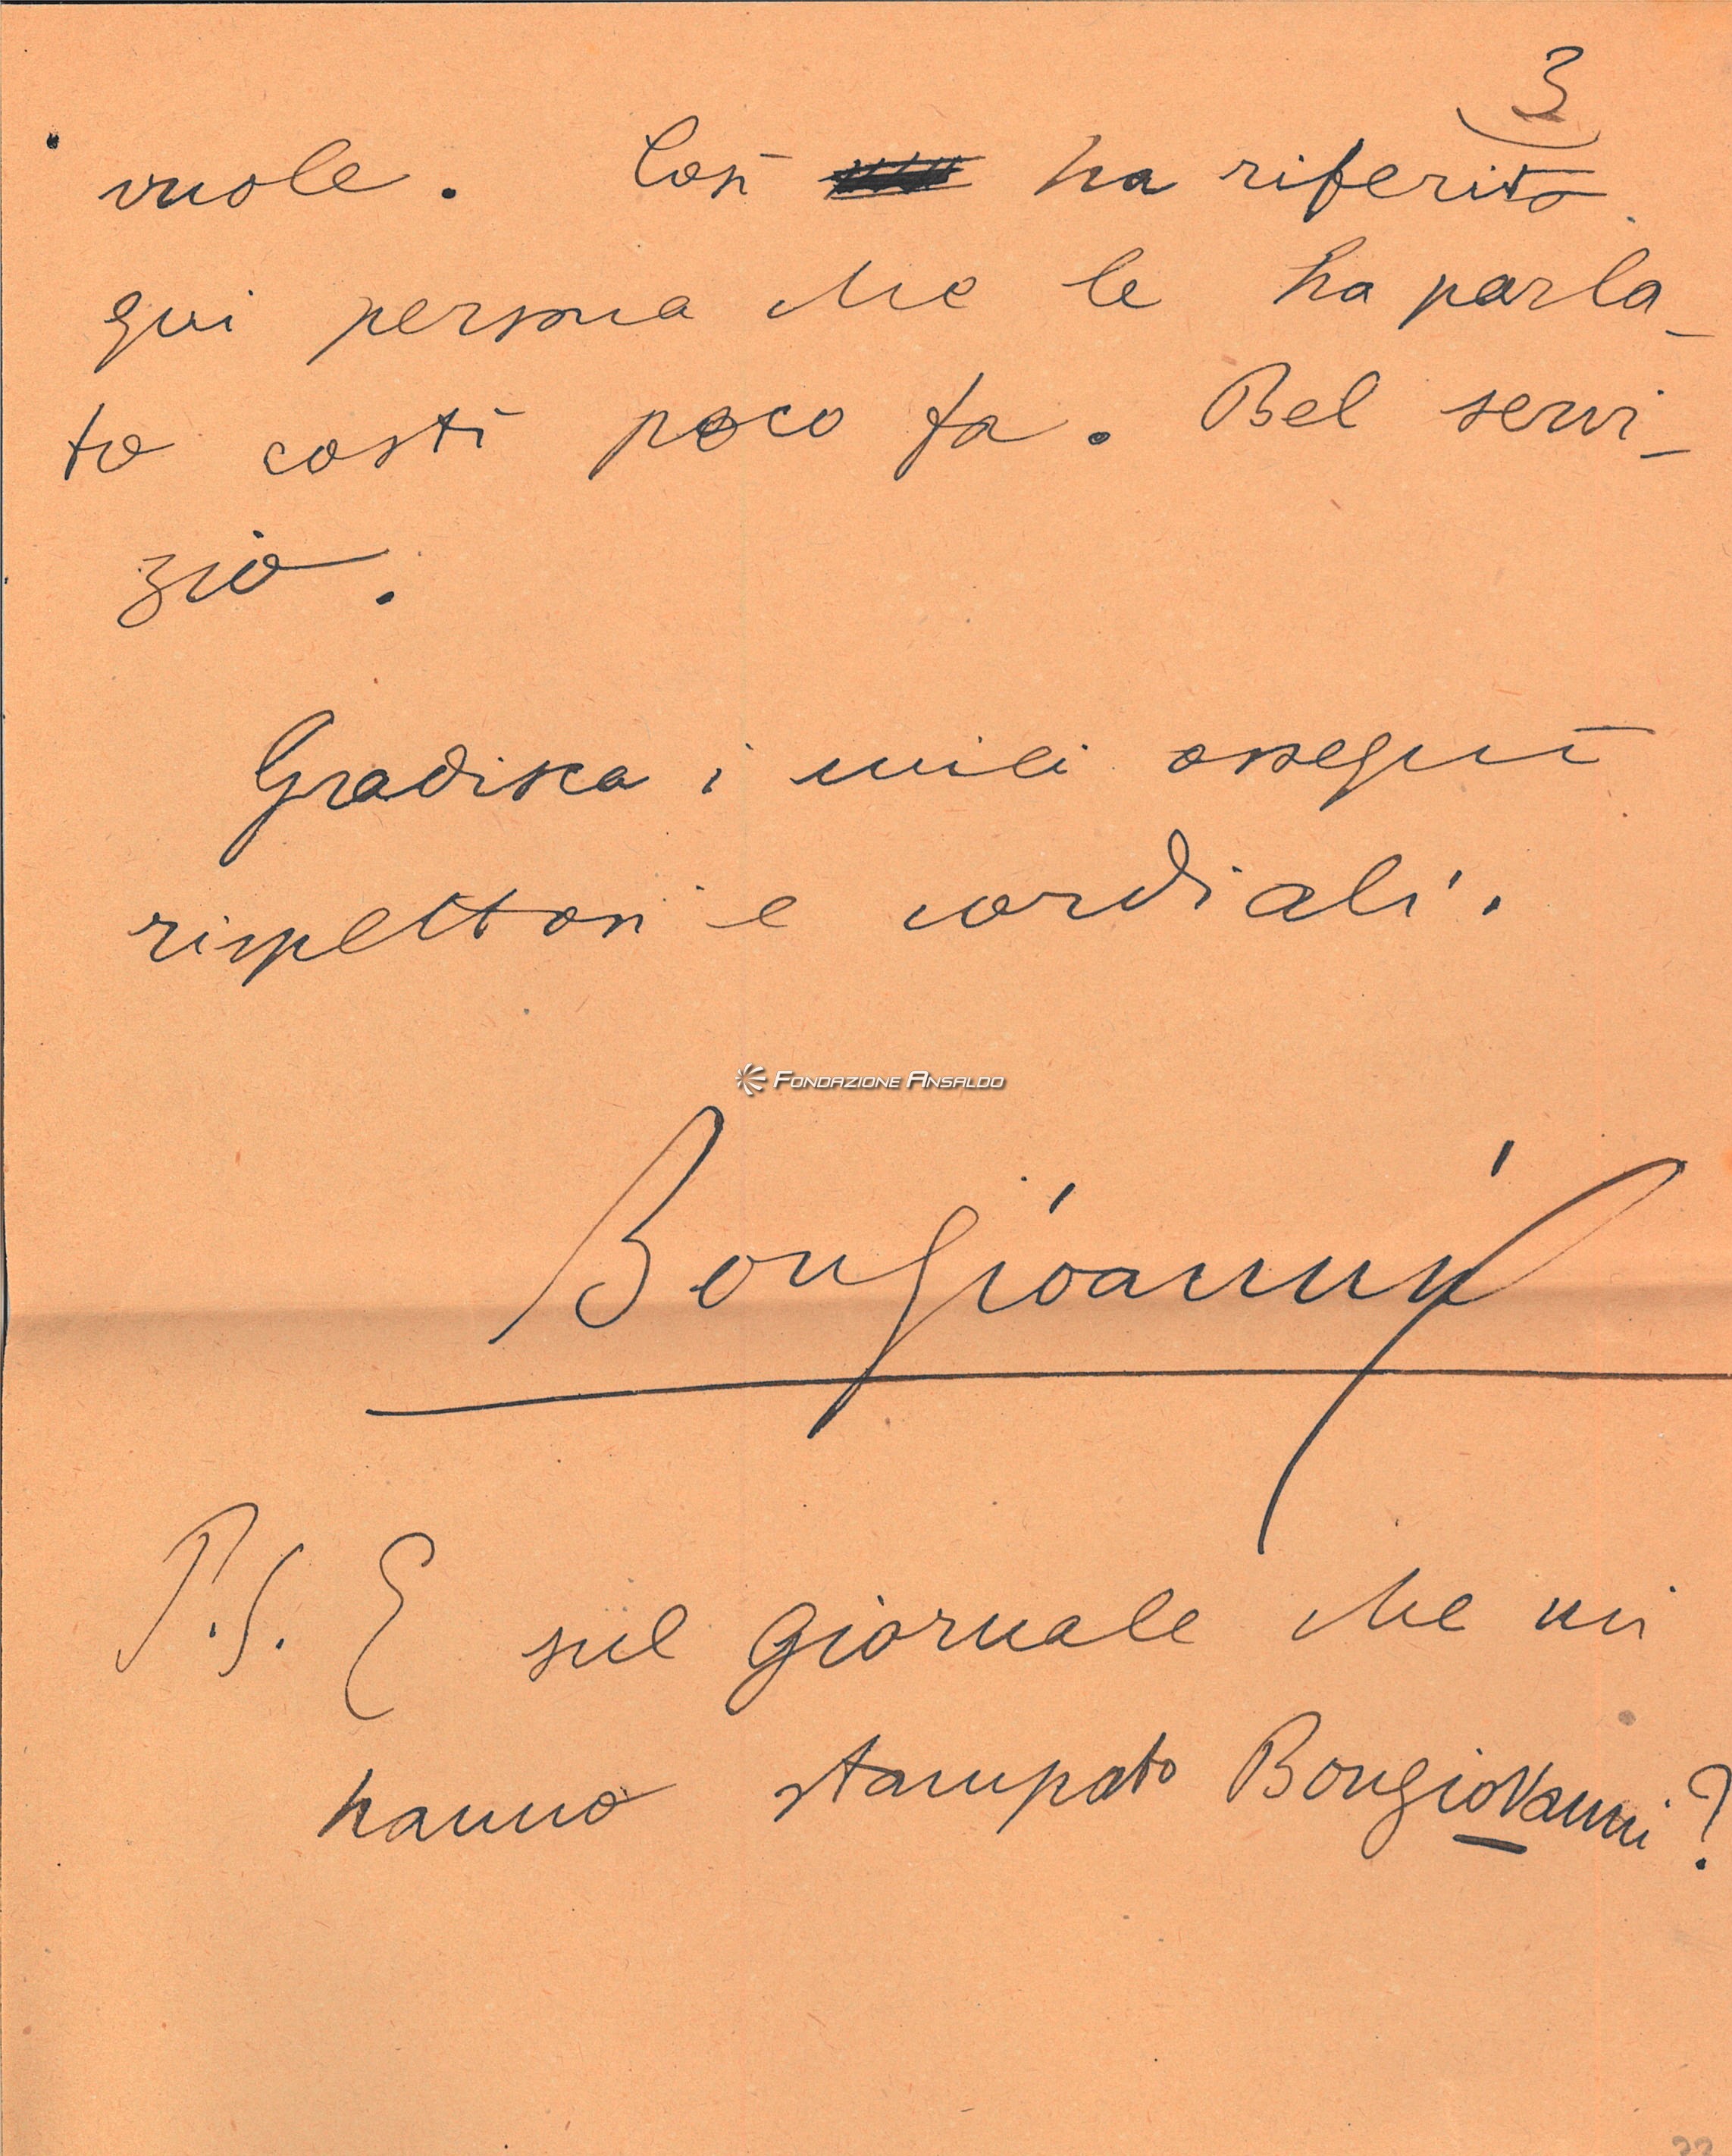 3
vuole. Così ha riferito
qui persona che le ha parla-
to costì poco fa. Bel servi-
zio.
Gradisca i miei ossequi
rispettosi e cordiali.
Fondazione Ansaldo
Bongioanni
P.S. E sul giornale che mi
hanno stampato BongioVanni?